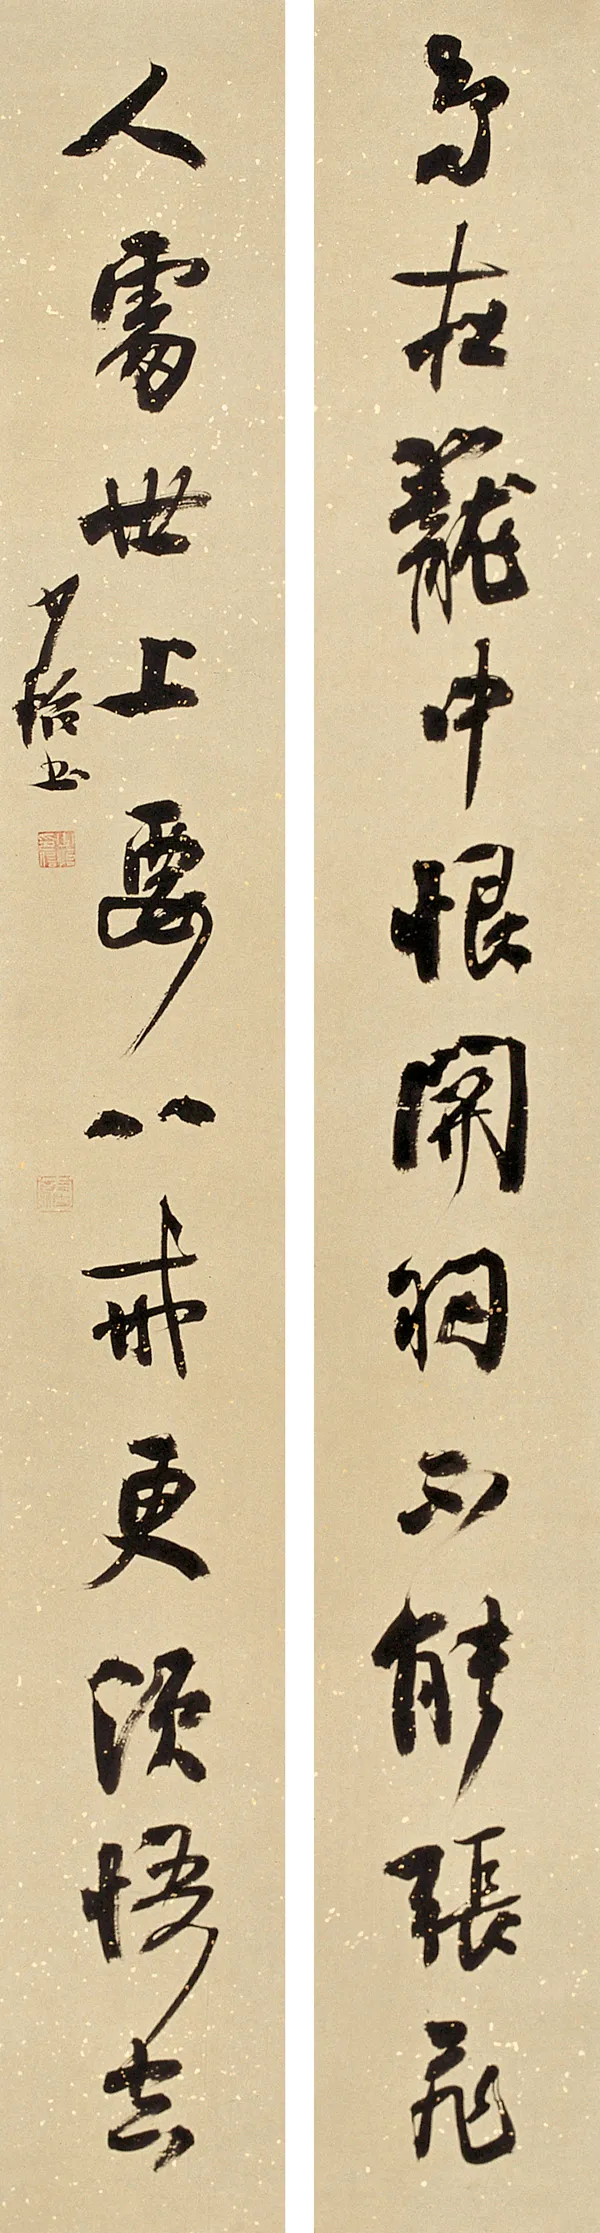 鳥在籠中恨關羽不能張飛
人處世上要八戒更須悟空
少怡書